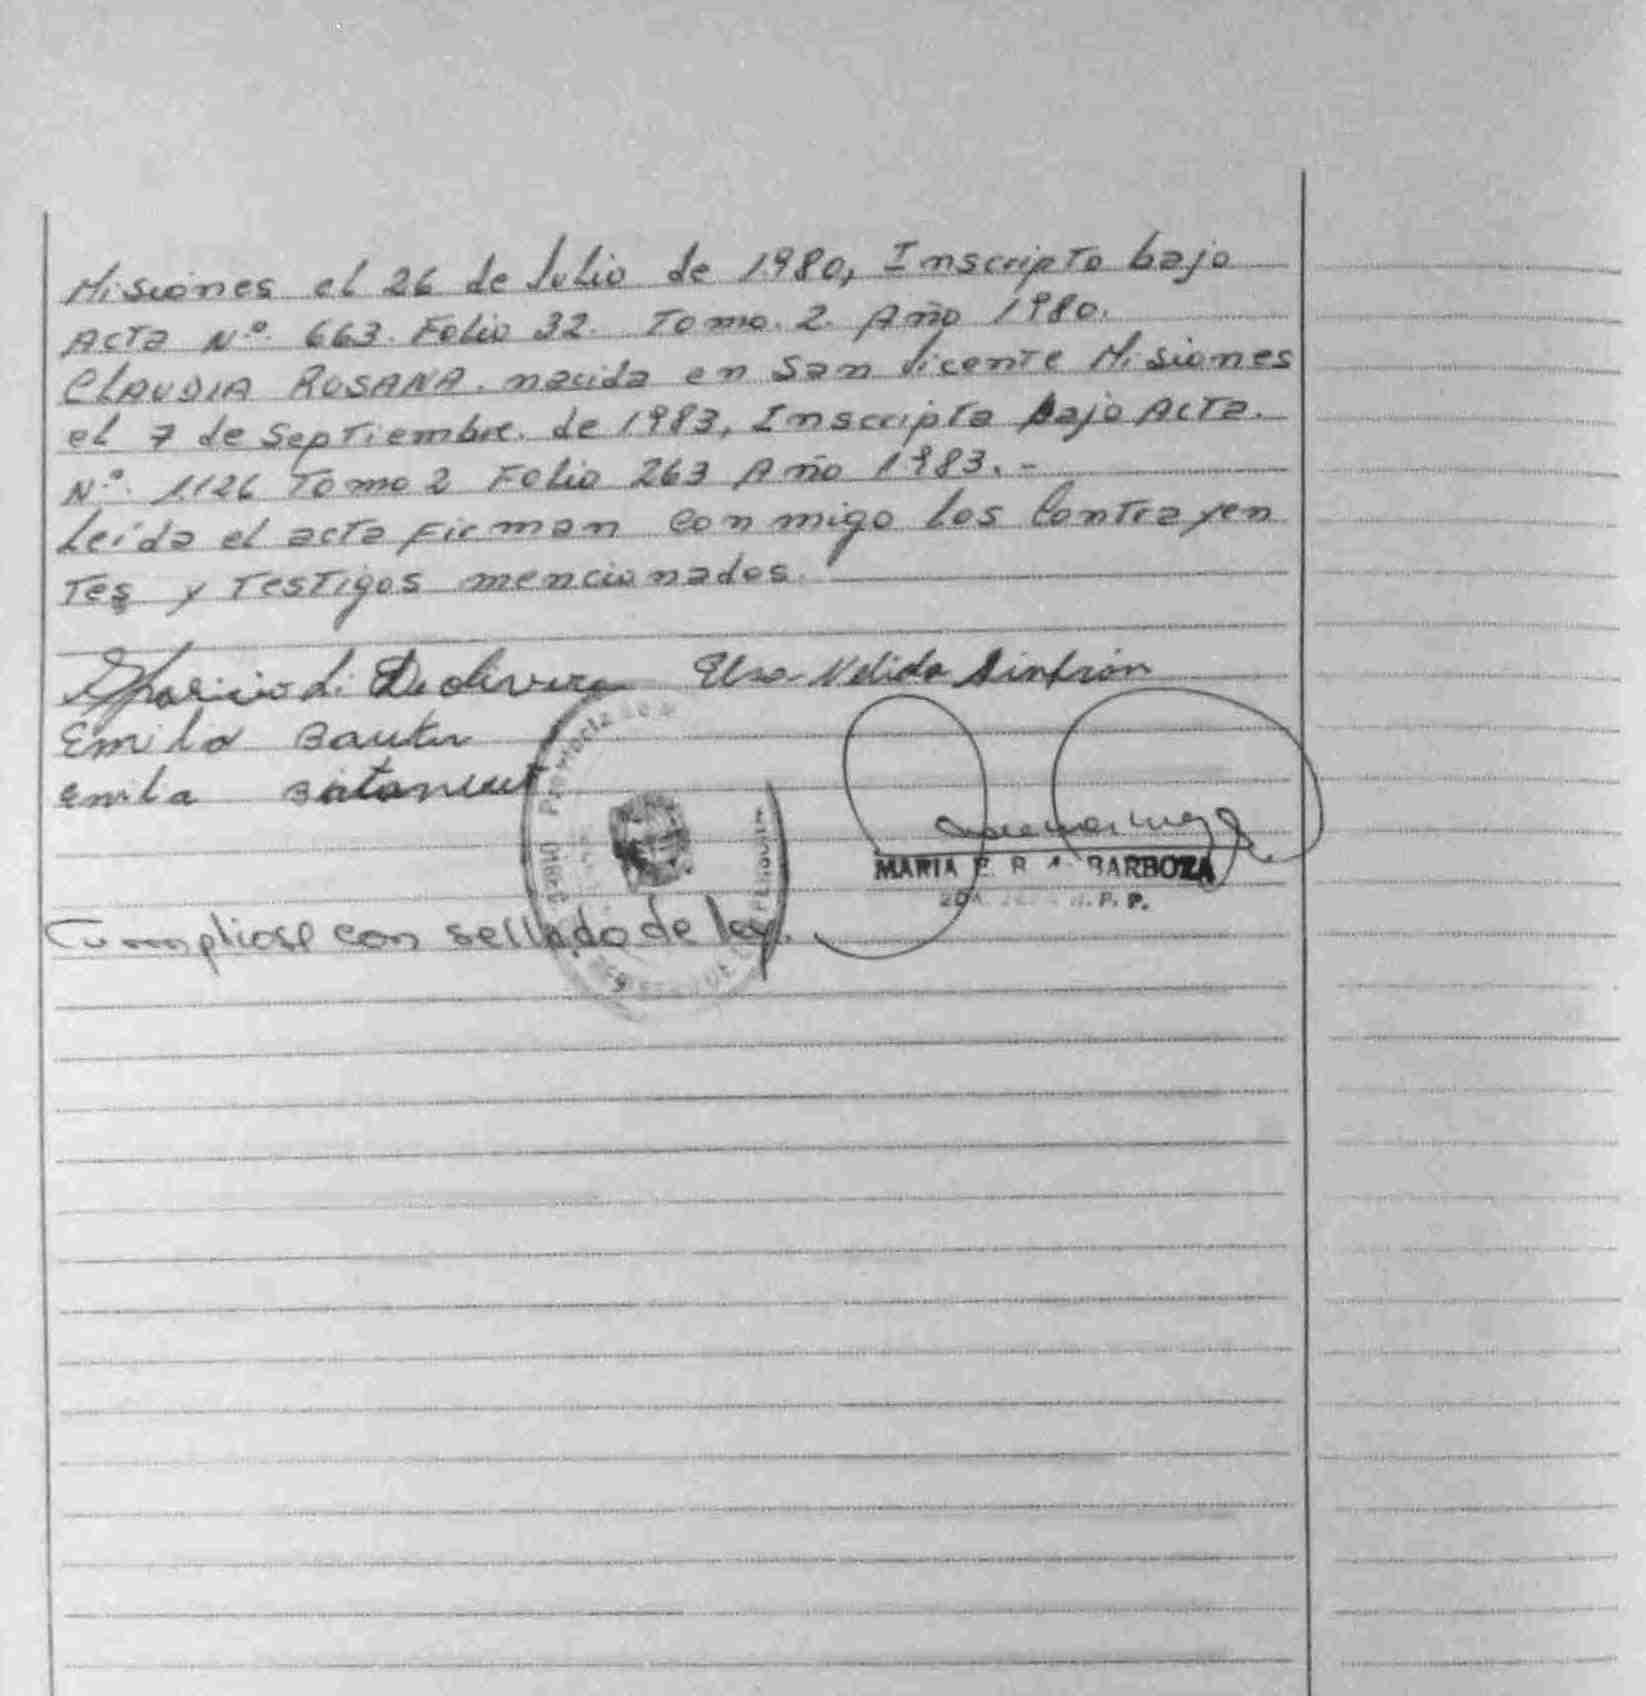 Misiones el 26 de Julio de 1980, Inscripto bajo
Acta Nº. 663. Folio 32. Tomo. 2. Año 1980.
CLAUDIA ROSANA. nacida en San Vicente Misiones
el 7 de Septiembre. de 1983, Inscripta bajo Acta.
Nº. 1126 Tomo 2 Folio 263 Año 1983.-
Leída el acta Firman Conmigo los Contrayen
Tes y Testigos mencionados.
L. De olivera Elsa Nelida Sintrón
Emilo Bauter
Emila
Provincia
MARIA E. R. BARBOZA
Cumpliose con sellado de ley.